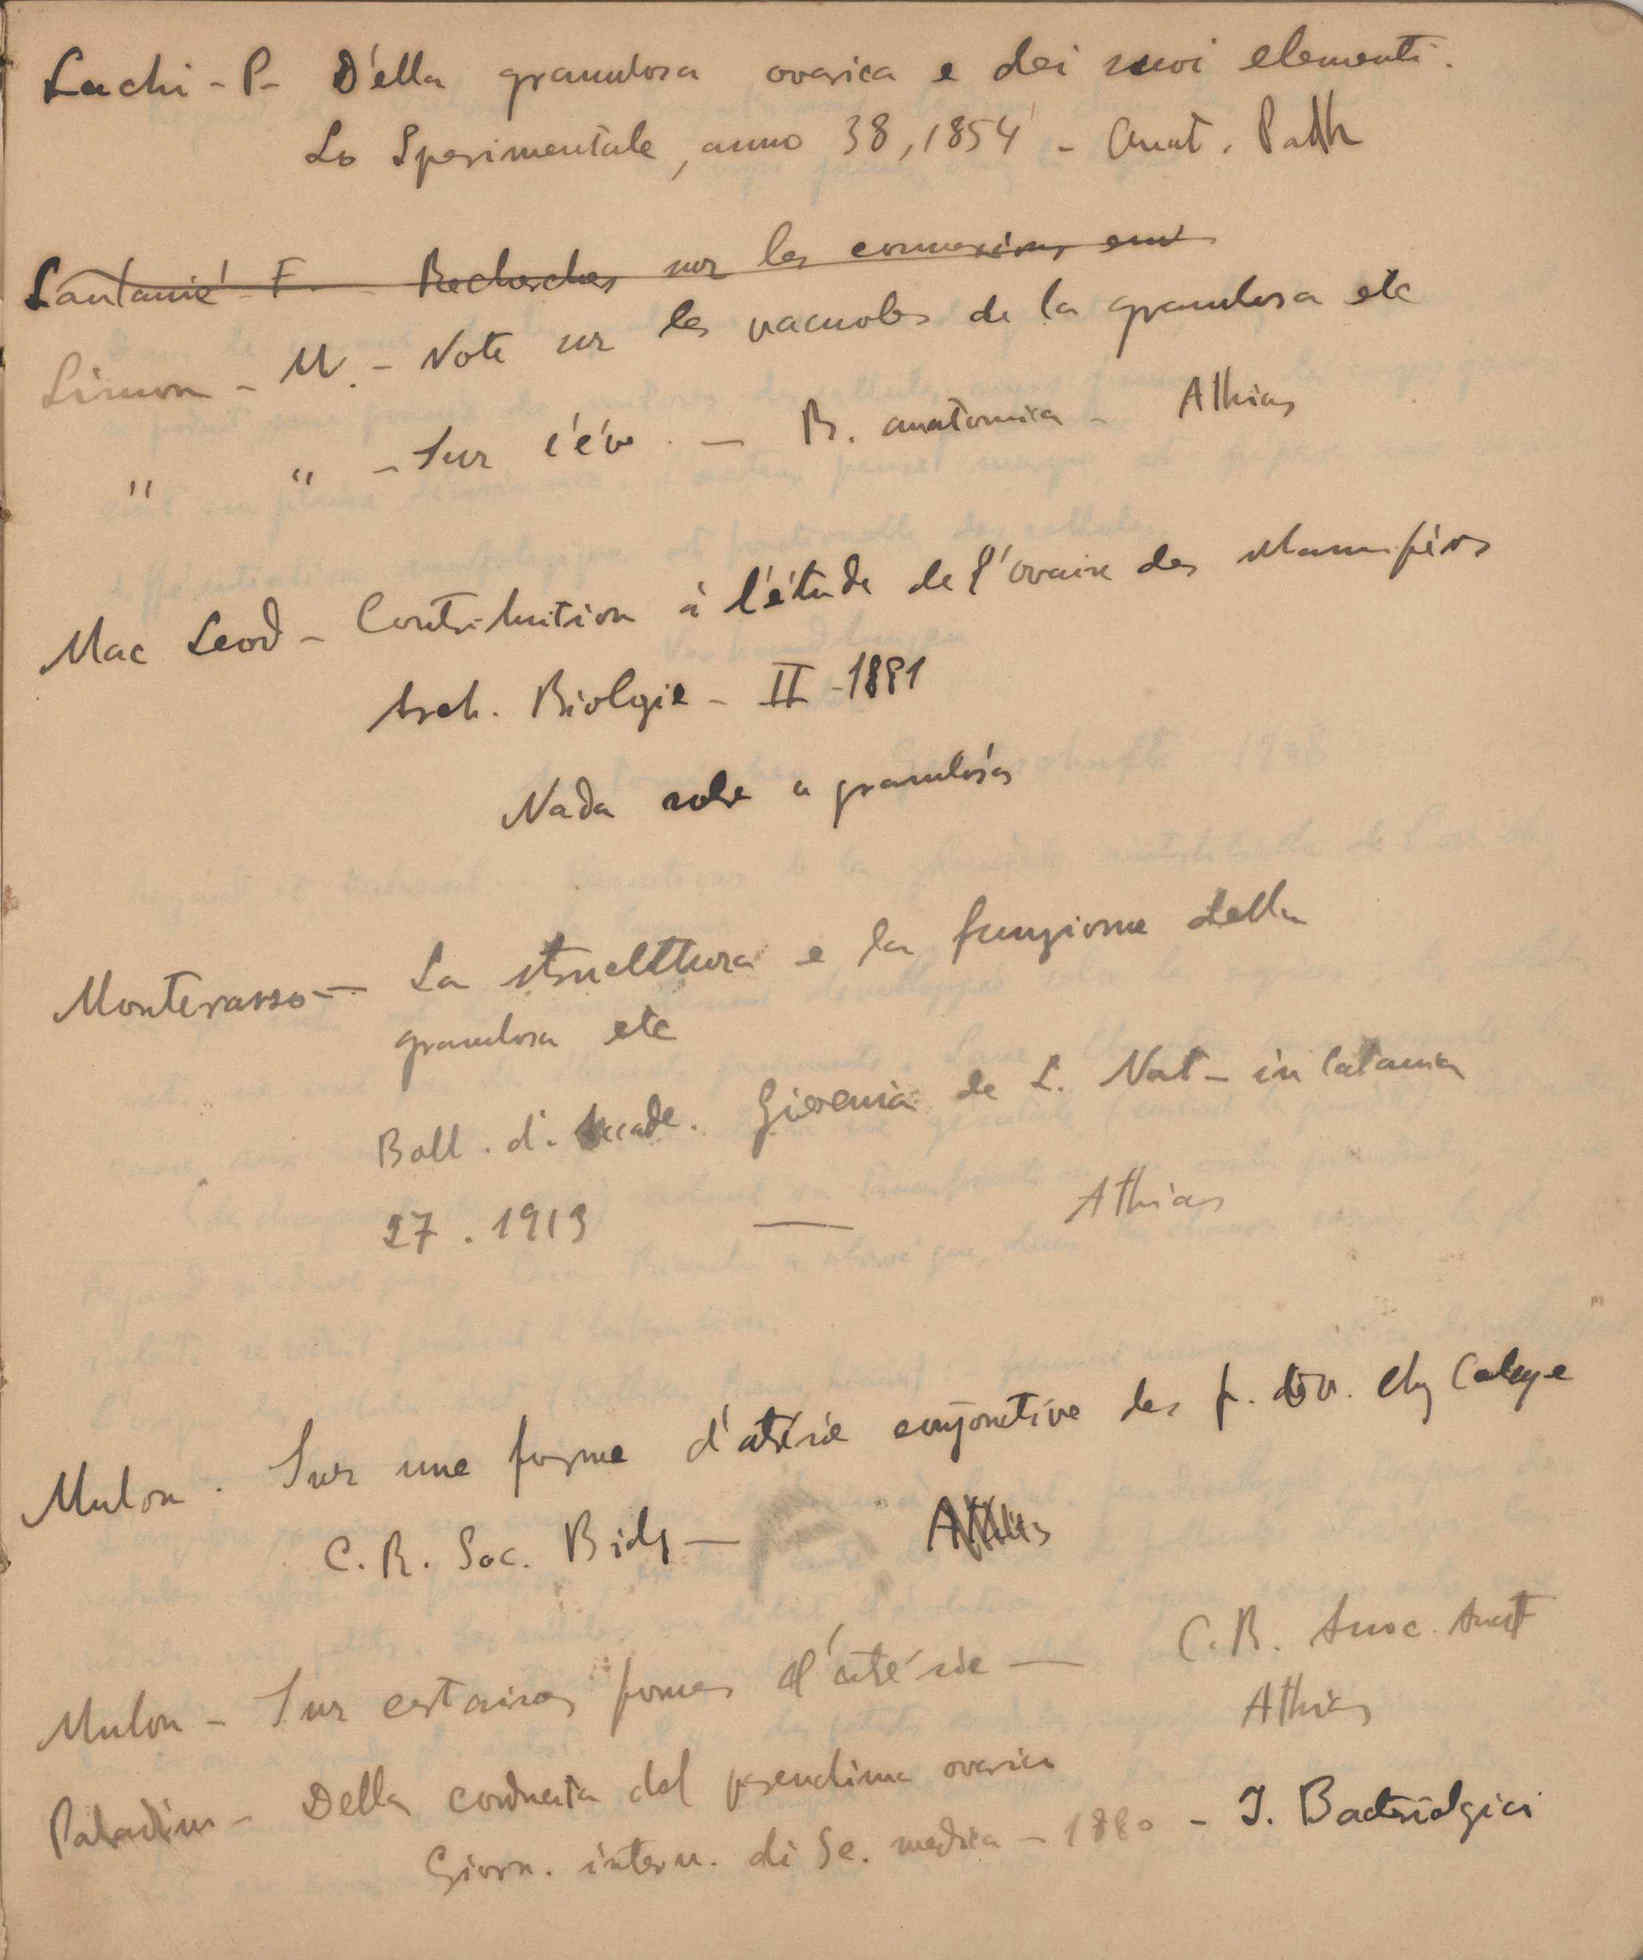 Lachi - P- Della granulosa ovarica e dei suoi elementi.
Lo Sperimentale, anno 38, 1854 - Anat. Path
Lautanié - F. - Recherches sur les connexions
Limon - M. - Note sur les vacuoles de la granulosa etc
" " - Sur l'év. - B. anatomica - Athias
Mac Leod - Contribution à l'étude de l'ovaire des Mammifères
Arch. Biolgie - II - 1881
Nada sobre a granulosa
Monterosso - La structtura e la funzione della
granulosa etc
Boll. d. Accade. Gioenia de S. Nat - in Catania
27. 1913 — Athias
Mulon. Sur une forme d'atrésie conjonctive des f. d'ov. chz Cobaye
C. R. Soc. Biolg —
Mulon - Sur certaines formes d'atrésie — C. R. Assoc. Anat
Athias
Paladino - Della caduta del parenchima ovarico
Giorn. intern. di Sc. medica - 1880 - I. Bacteriolgico